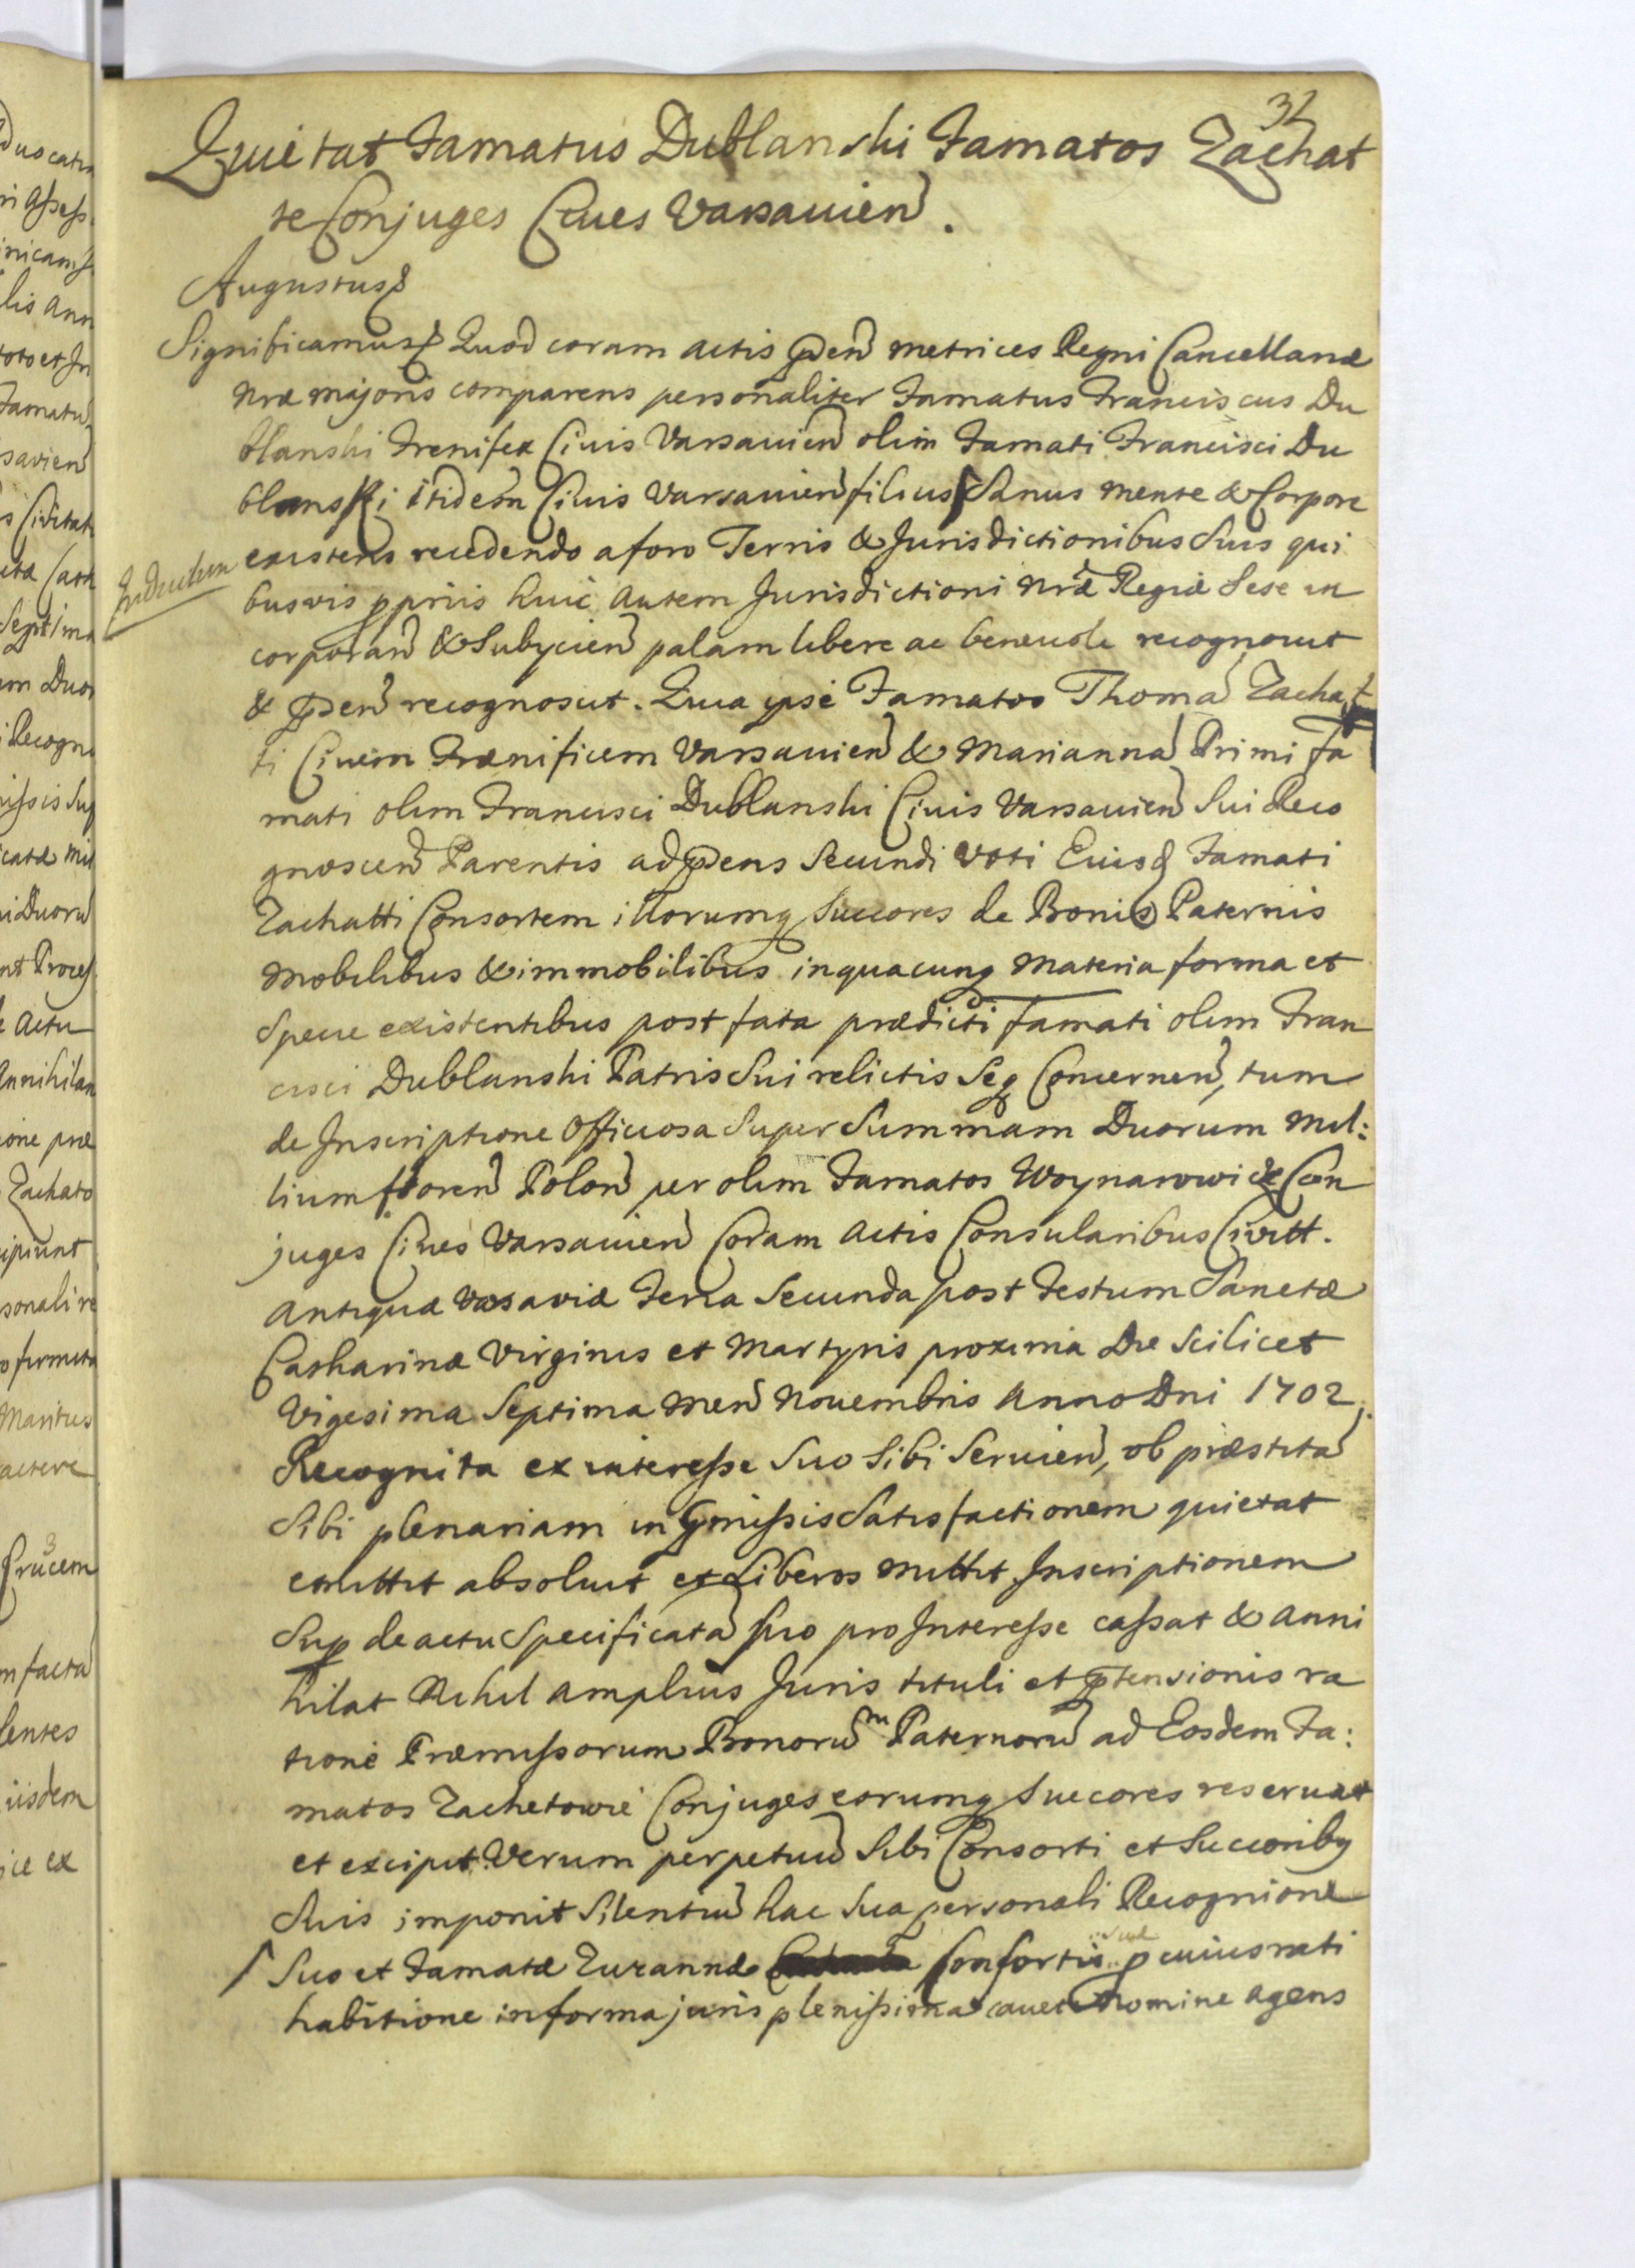 31
Quietat Famatus Dublanski Famatos Zachat
te Conjuges Cives Varsavien.
Augustus
Significamus Quod coram actis pñen metrices Regni Cancellariæ
nræ majoris comparens personaliter Famatus Franciscus Du
blanski Frenifex Civis Varsavien olim Famati Francisci Du
blanski itidem Civis Varsavien filius / Sanus mente & Corpore
existens recedendo a foro Terris & Jurisdictionibus Suis qui
busvis ppriis huic autem Jurisdictioni nræ Regiæ Sese in
corporan & Subycien palam libere ac benevole recognovit
& pñen recognoscit. Quia ipse Famatos Thoma Zachat
ti Civem Frænificem Varsavien & Marianna Primi fa
mati olim Francisci Dublanski Civis Varsavien Sui Reco
gnoscen Parentis ad pñens Secundi Voti Eiusd Famati
Zachatti Consortem illorumq Succores de Bonis Paternis
mobilibus & immobilibus in quacunq materia forma et
Specie existentibus post fata prædicti famati olim Fran
cisci Dublanski Patris Sui relictis Seq Concernen, tum
de Inscriptione Officiosa Super Summam Duorum Mil:
lium floren Polon per olim Famatos Woynarowicze Con
juges Cives Varsavien Coram Actis Consularibus Civitt.
Antiquæ Varsaviæ Feria Secunda post Festum Sanctæ
Catharinæ Virginis et Martyris proxima Die Scilicet
Vigesima Septima Men Novembris Anno Dni 1702
Recognita ex interesse Suo Sibi Servien, ob præstita
Sibi plenariam in pmissis Satisfactionem quietat
emittit absolvit et Liberos mittit Inscriptionem
Sup de actu Specificata pro pro Interesse cassat & anni
hilat Nihil amplius Juris tituli et ptensionis ra
tione Præmissorum Bonoru m Paternoru ad Eosdem Fa:
matos Zachetowie Conjuges eorumq Succores reservat
et excipit. Verum perpetuu Sibi Consorti et Succoribq
Suis imponit Silentiu hac Sua personali Recognione
/ Suo et Famatæ Zuzannæ Consortis suæ p cuius rati
habitione in forma juris plenissima cavet nomine agens